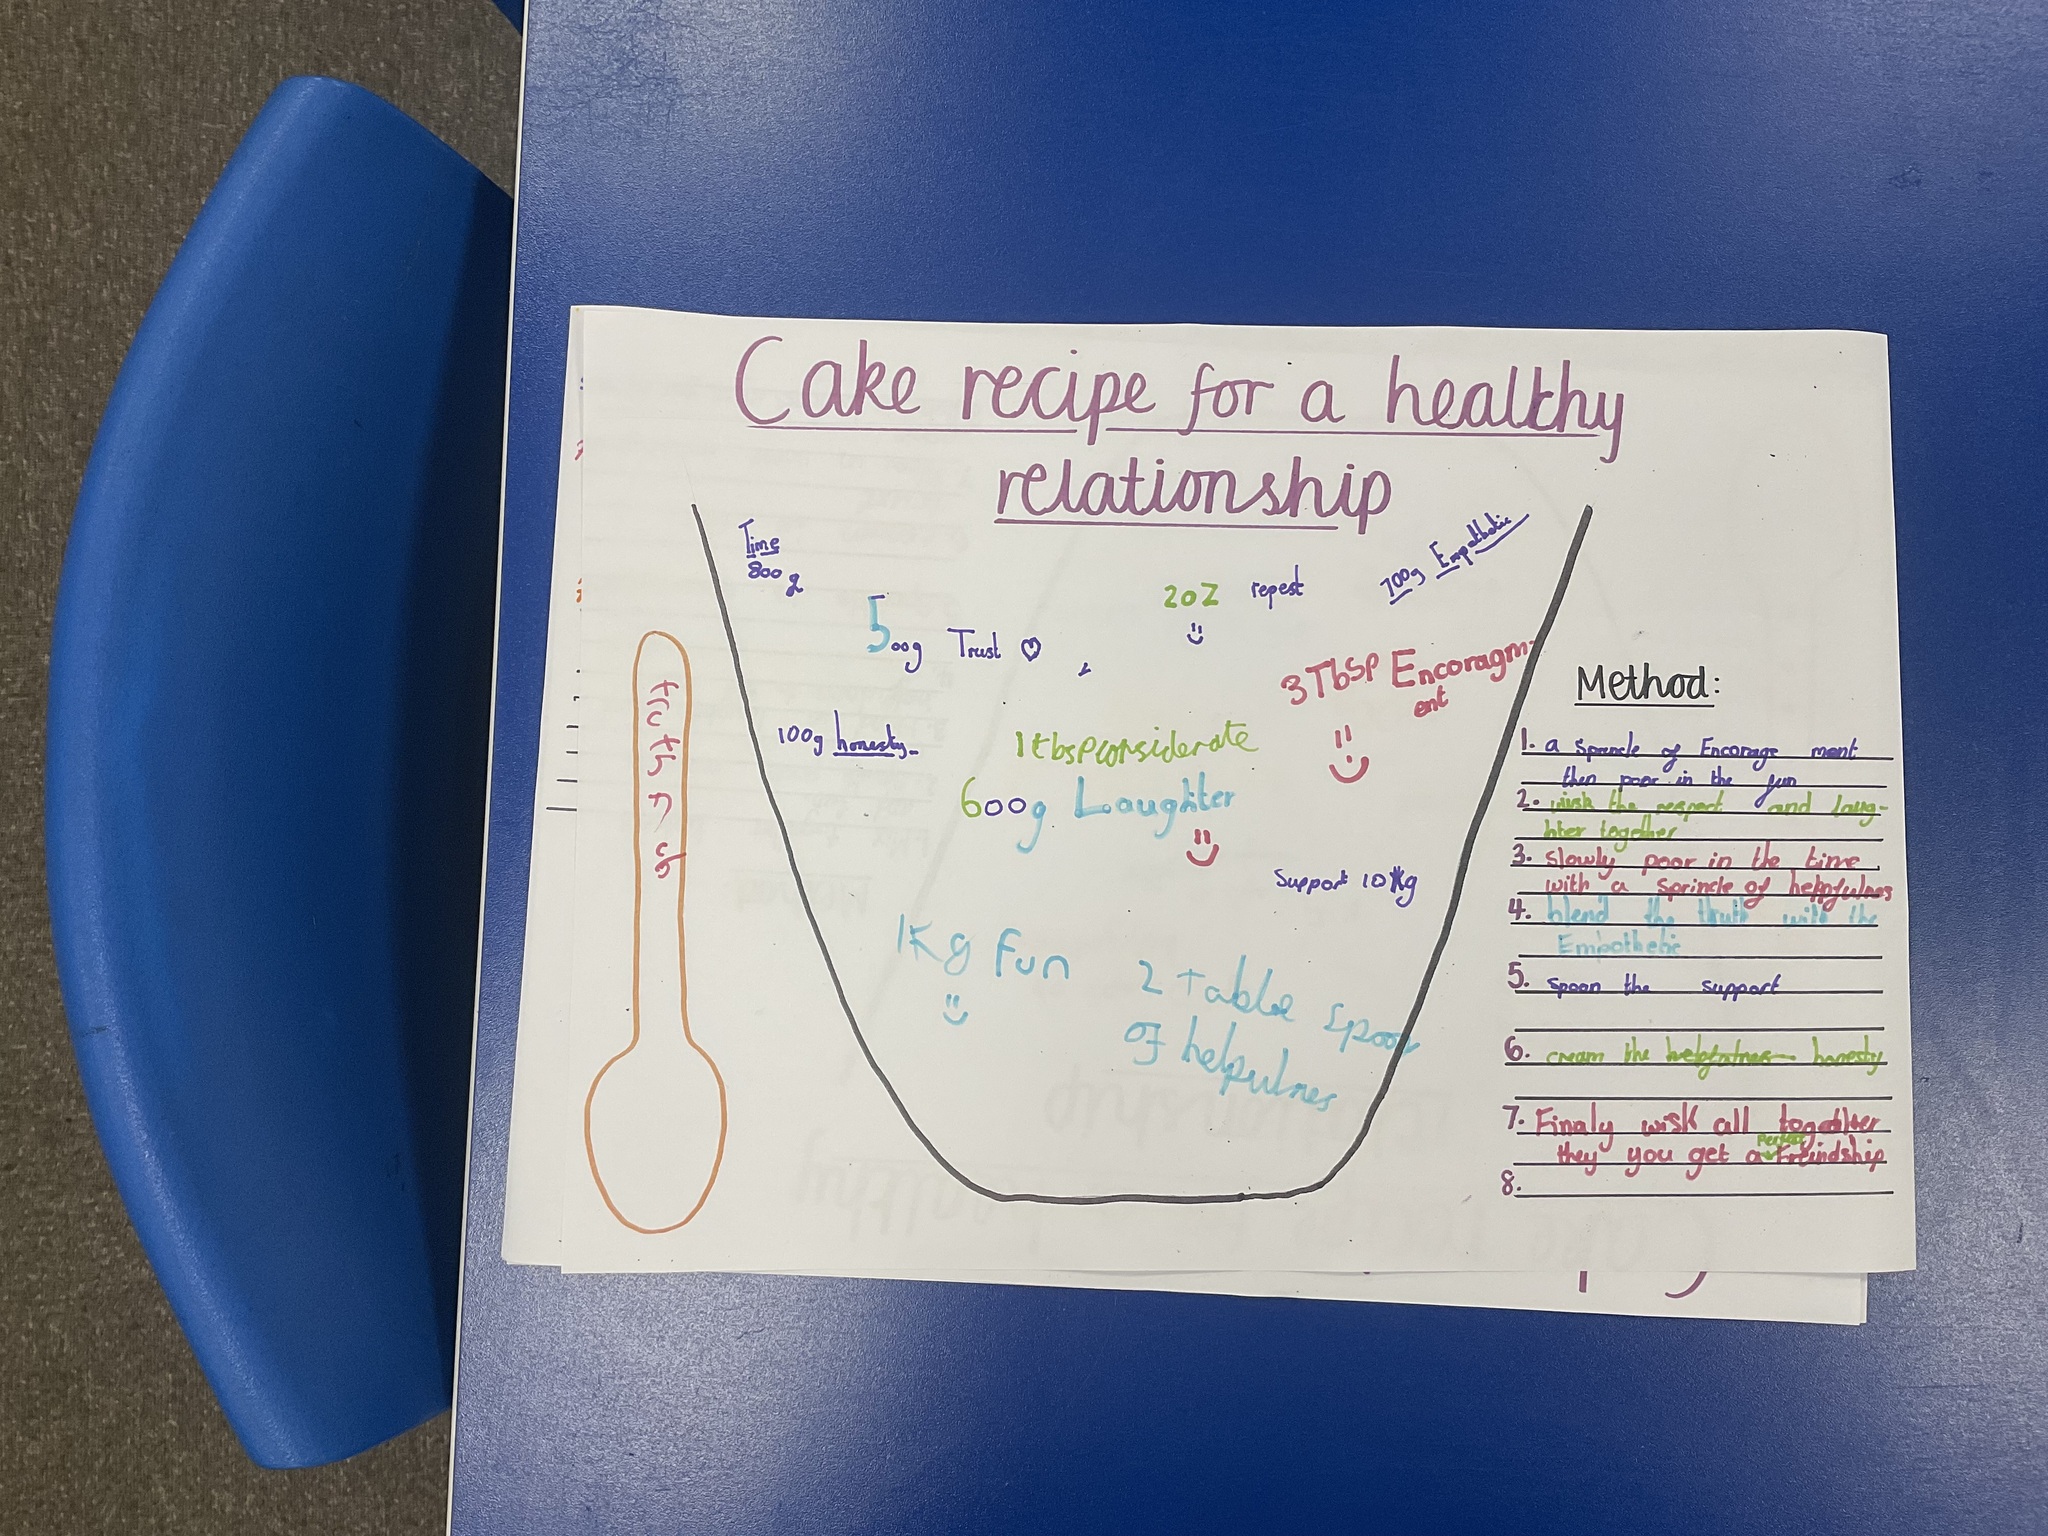 Cake recipe for a healthy
relationship
Time
800g
500g Trust
2oz repest
700g Empathetic
3 Tbsp Encoragm-
ent
100g honesty
1 tbsp considerate
600g Laughter
Support 10Kg
1Kg Fun
2 table spoon
of helpulnes
Method:
1. a Sprincle of Encorage ment
then poor in the fun
2. wisk the respect and laug-
hter together
3. slowly poor in the time
with a sprincle of helpfulnes
4. blend the thruth with the
Empathetic
5. spoon the support
6. cream the honesty
7. Finaly wisk all together
they you get a perfect Freindship
8.